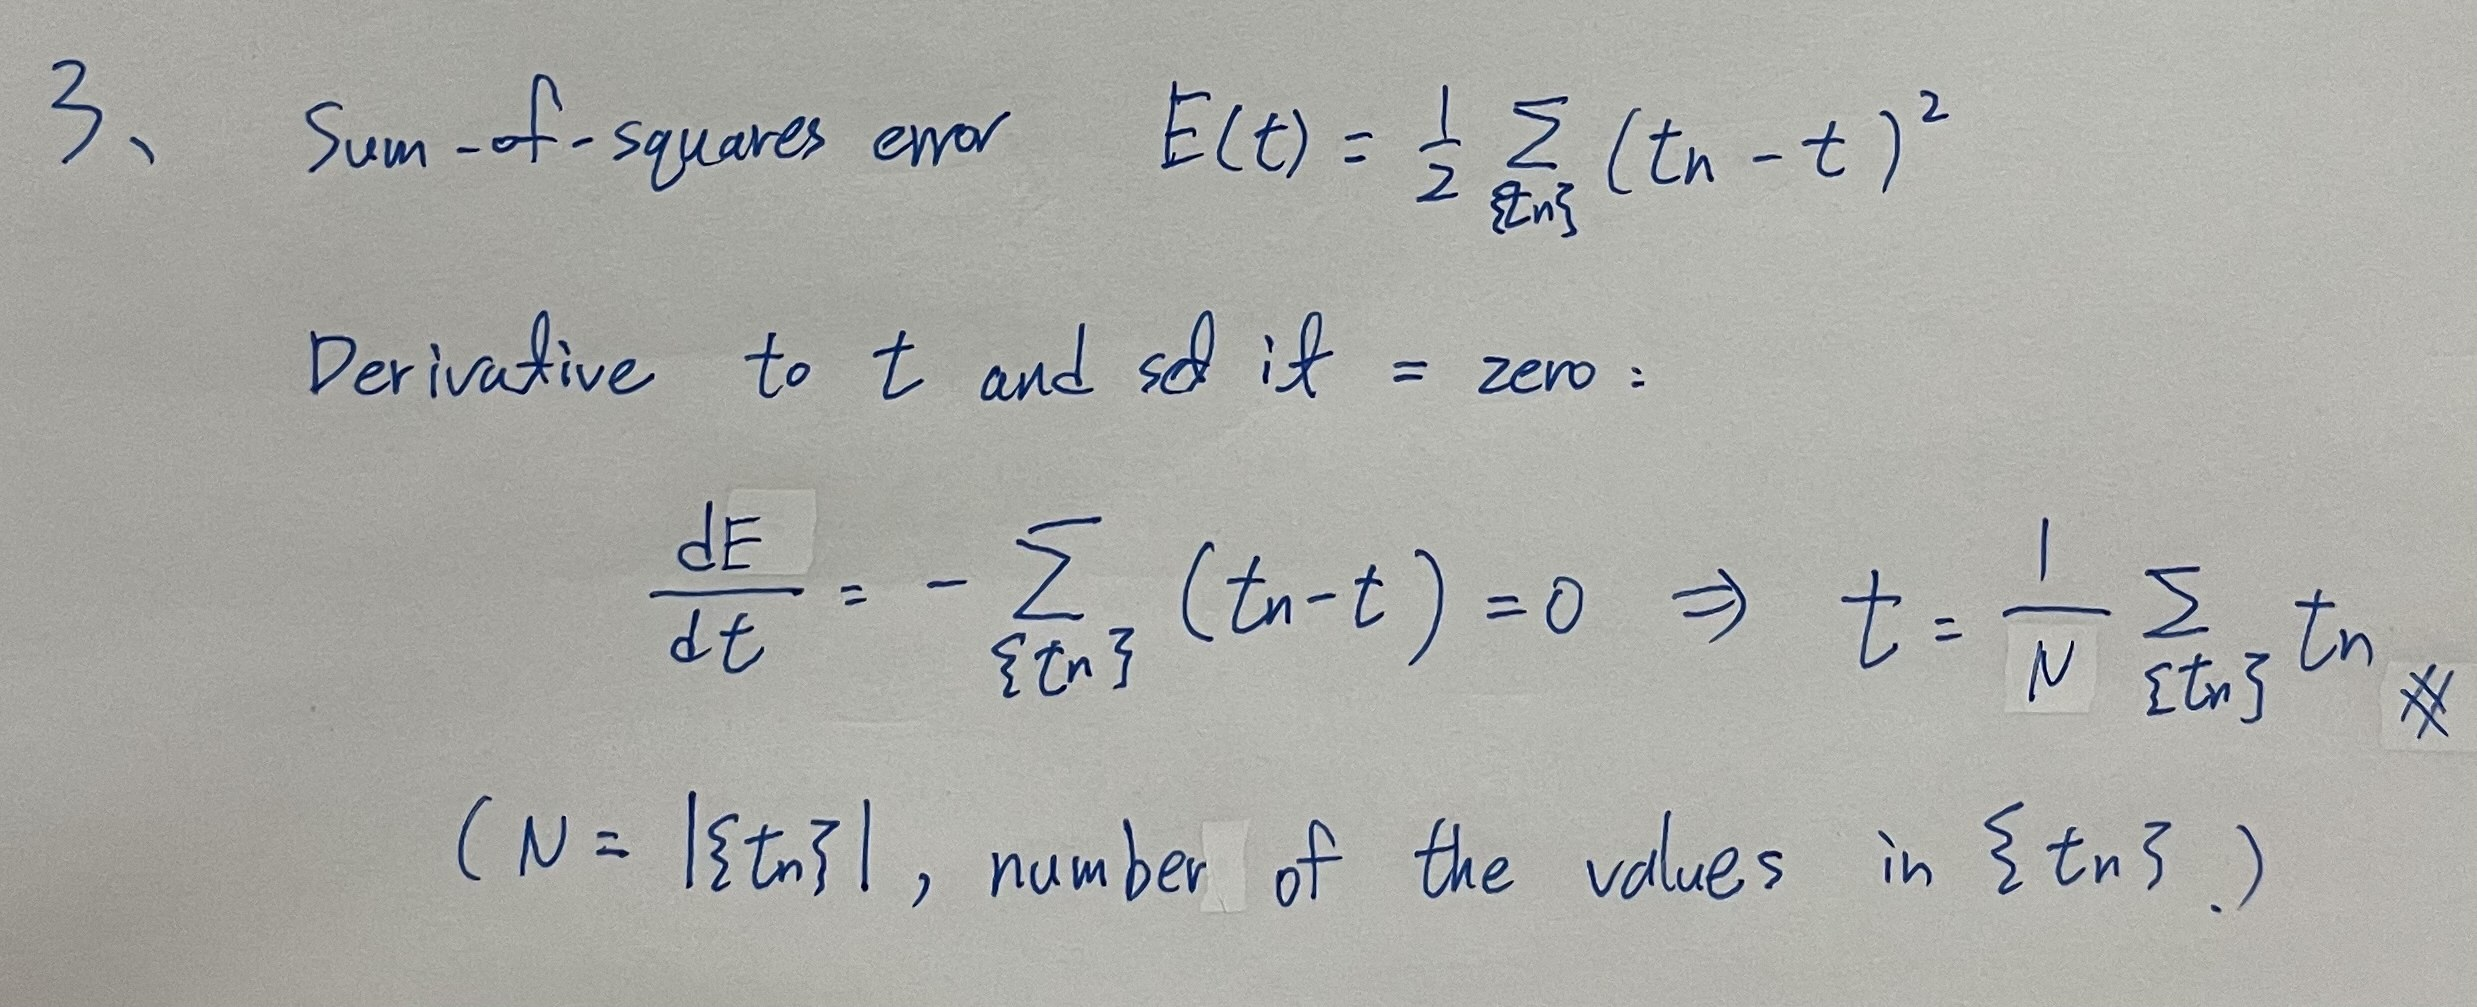 3、 Sum-of-squares error E(t) = 1/2 Σ_{tn} (tn - t)²
Derivative to t and set it = zero :
dE/dt = - Σ_{tn} (tn - t) = 0 ⇒ t = 1/N Σ_{tn} tn #
( N = |{tn}| , number of the values in {tn} . )